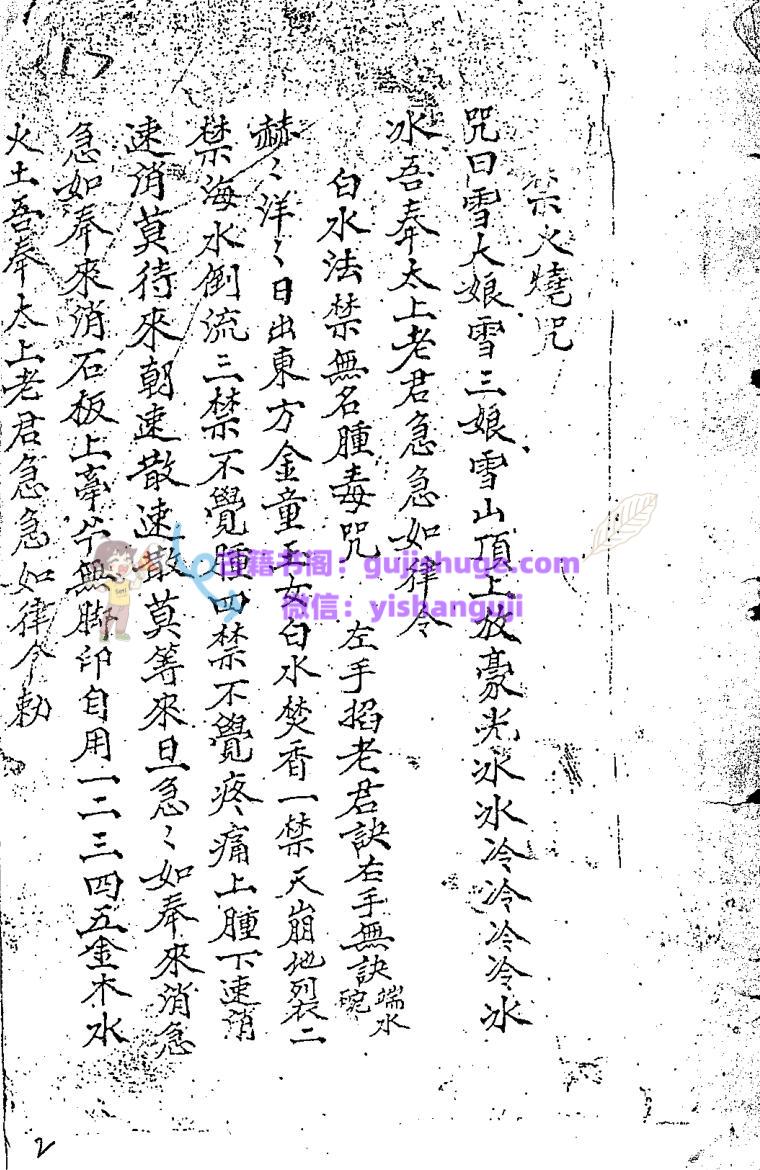 禁火燒咒
咒曰雪大娘雪三娘雪山頂上放豪光冰冰冷冷冷冷冰
冰吾奉太上老君急急如律令
白水法禁無名腫毒咒 左手掐老君訣右手無訣端水碗
赫〻洋〻日出東方金童玉女白水焚香一禁天崩地裂二
禁海水倒流三禁不覺腫四禁不覺疼痛上腫下速消
速消莫待來朝速散速散莫等來旦急〻如奉來消急
急如奉來消石板上牽牛無脚印自用一二三四五金木水
火土吾奉太上老君急急如律令勅
古籍书阁：gujishuge.com
微信：yishanguji
2